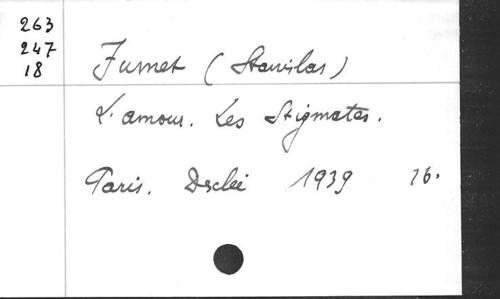 263
247
18
Fumet (Stanislas)
L'amour. Les Stigmates.
Paris. Desclée 1939 16.